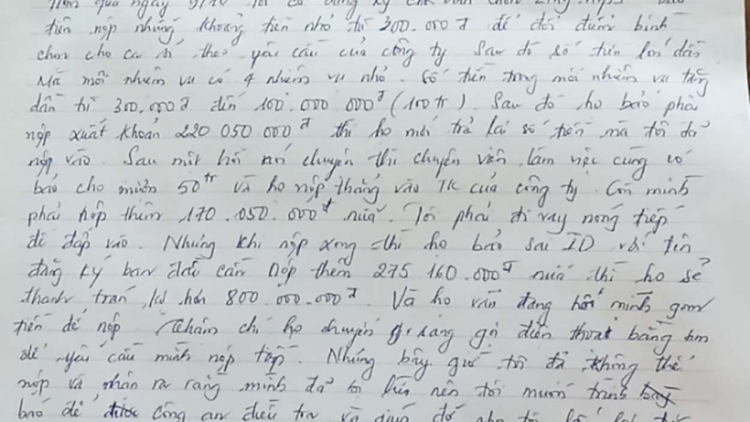 qua ngày 9/10 tôi có đăng ký
tiền nộp những khoảng tiền nhỏ từ 300.000đ để đổi điểm bình
chọn cho ca sĩ theo yêu cầu của công ty Sau đó số tiền lớn dần
Mà mỗi nhiệm vụ có 4 nhiệm vụ nhỏ. Số tiền trong mỗi nhiệm vụ tăng
dần từ 300.000đ đến 100.000 000đ (100tr). Sau đó họ bảo phải
nộp xuất khoản 220 050 000đ thì họ mới trả lại số tiền mà tôi đã
nộp vào. Sau một hồi nói chuyện thì chuyên viên làm việc cũng có
báo cho mượn 50tr và họ nộp thẳng vào TK của công ty. Còn mình
phải nộp thêm 170.050.000đ nữa. Tôi phải đi vay nóng tiếp
để đắp vào. Nhưng khi nộp xong thì họ bảo sai ID với tên
đăng ký ban đầu cần nộp thêm 275 160.000đ nữa thì họ sẽ
thanh toán lại hơn 800.000.000đ. Và họ vẫn đang hối mình gom
tiền để nộp Thậm chí họ chuyển sang gọi điện thoại bằng
để yêu cầu mình nộp tiếp. Nhưng bây giờ tôi đã không thể
nộp và nhận ra rằng mình đã bị lừa nên tôi muốn trình bày
báo để được công an điều tra và giúp đỡ cho tôi lấy lại